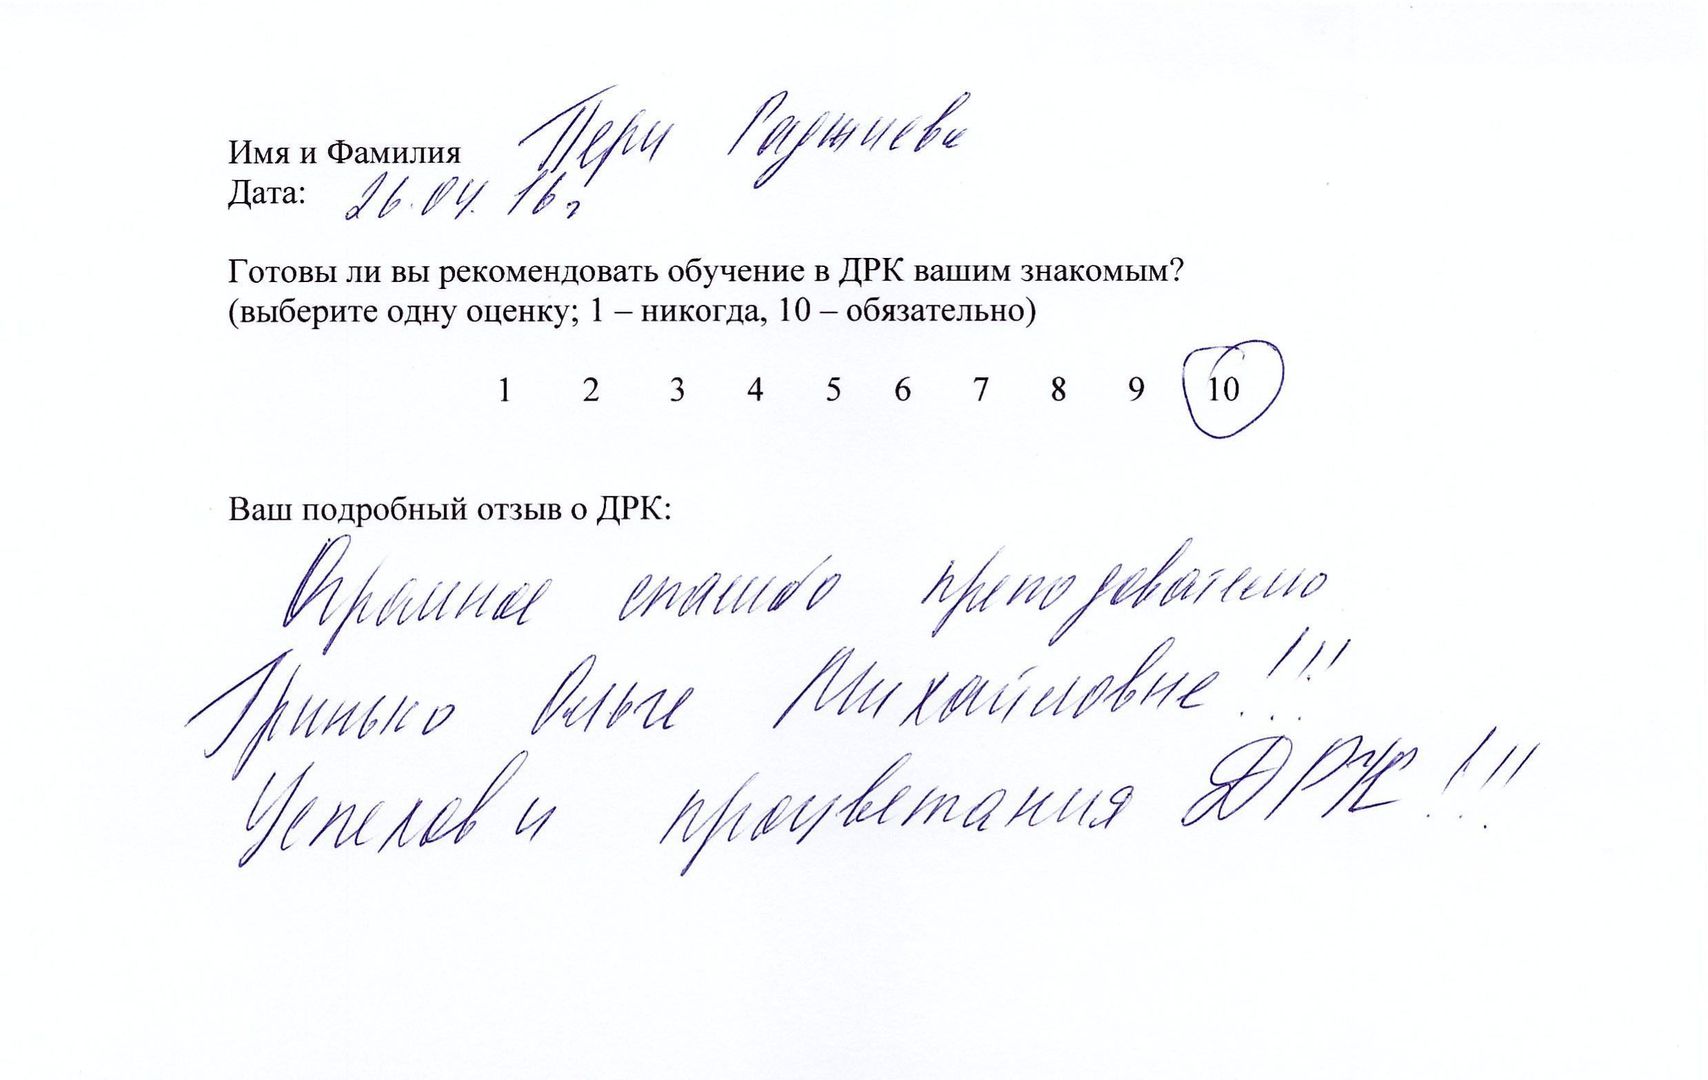 Имя и Фамилия Пери Гаджиева
Дата: 26.04.16г
Готовы ли вы рекомендовать обучение в ДРК вашим знакомым?
(выберите одну оценку; 1 – никогда, 10 – обязательно)
1 2 3 4 5 6 7 8 9 10
Ваш подробный отзыв о ДРК:
Огромное спасибо преподователю
Гринько Ольге Михайловне!!!
Успехов и процветания ДРК!!!